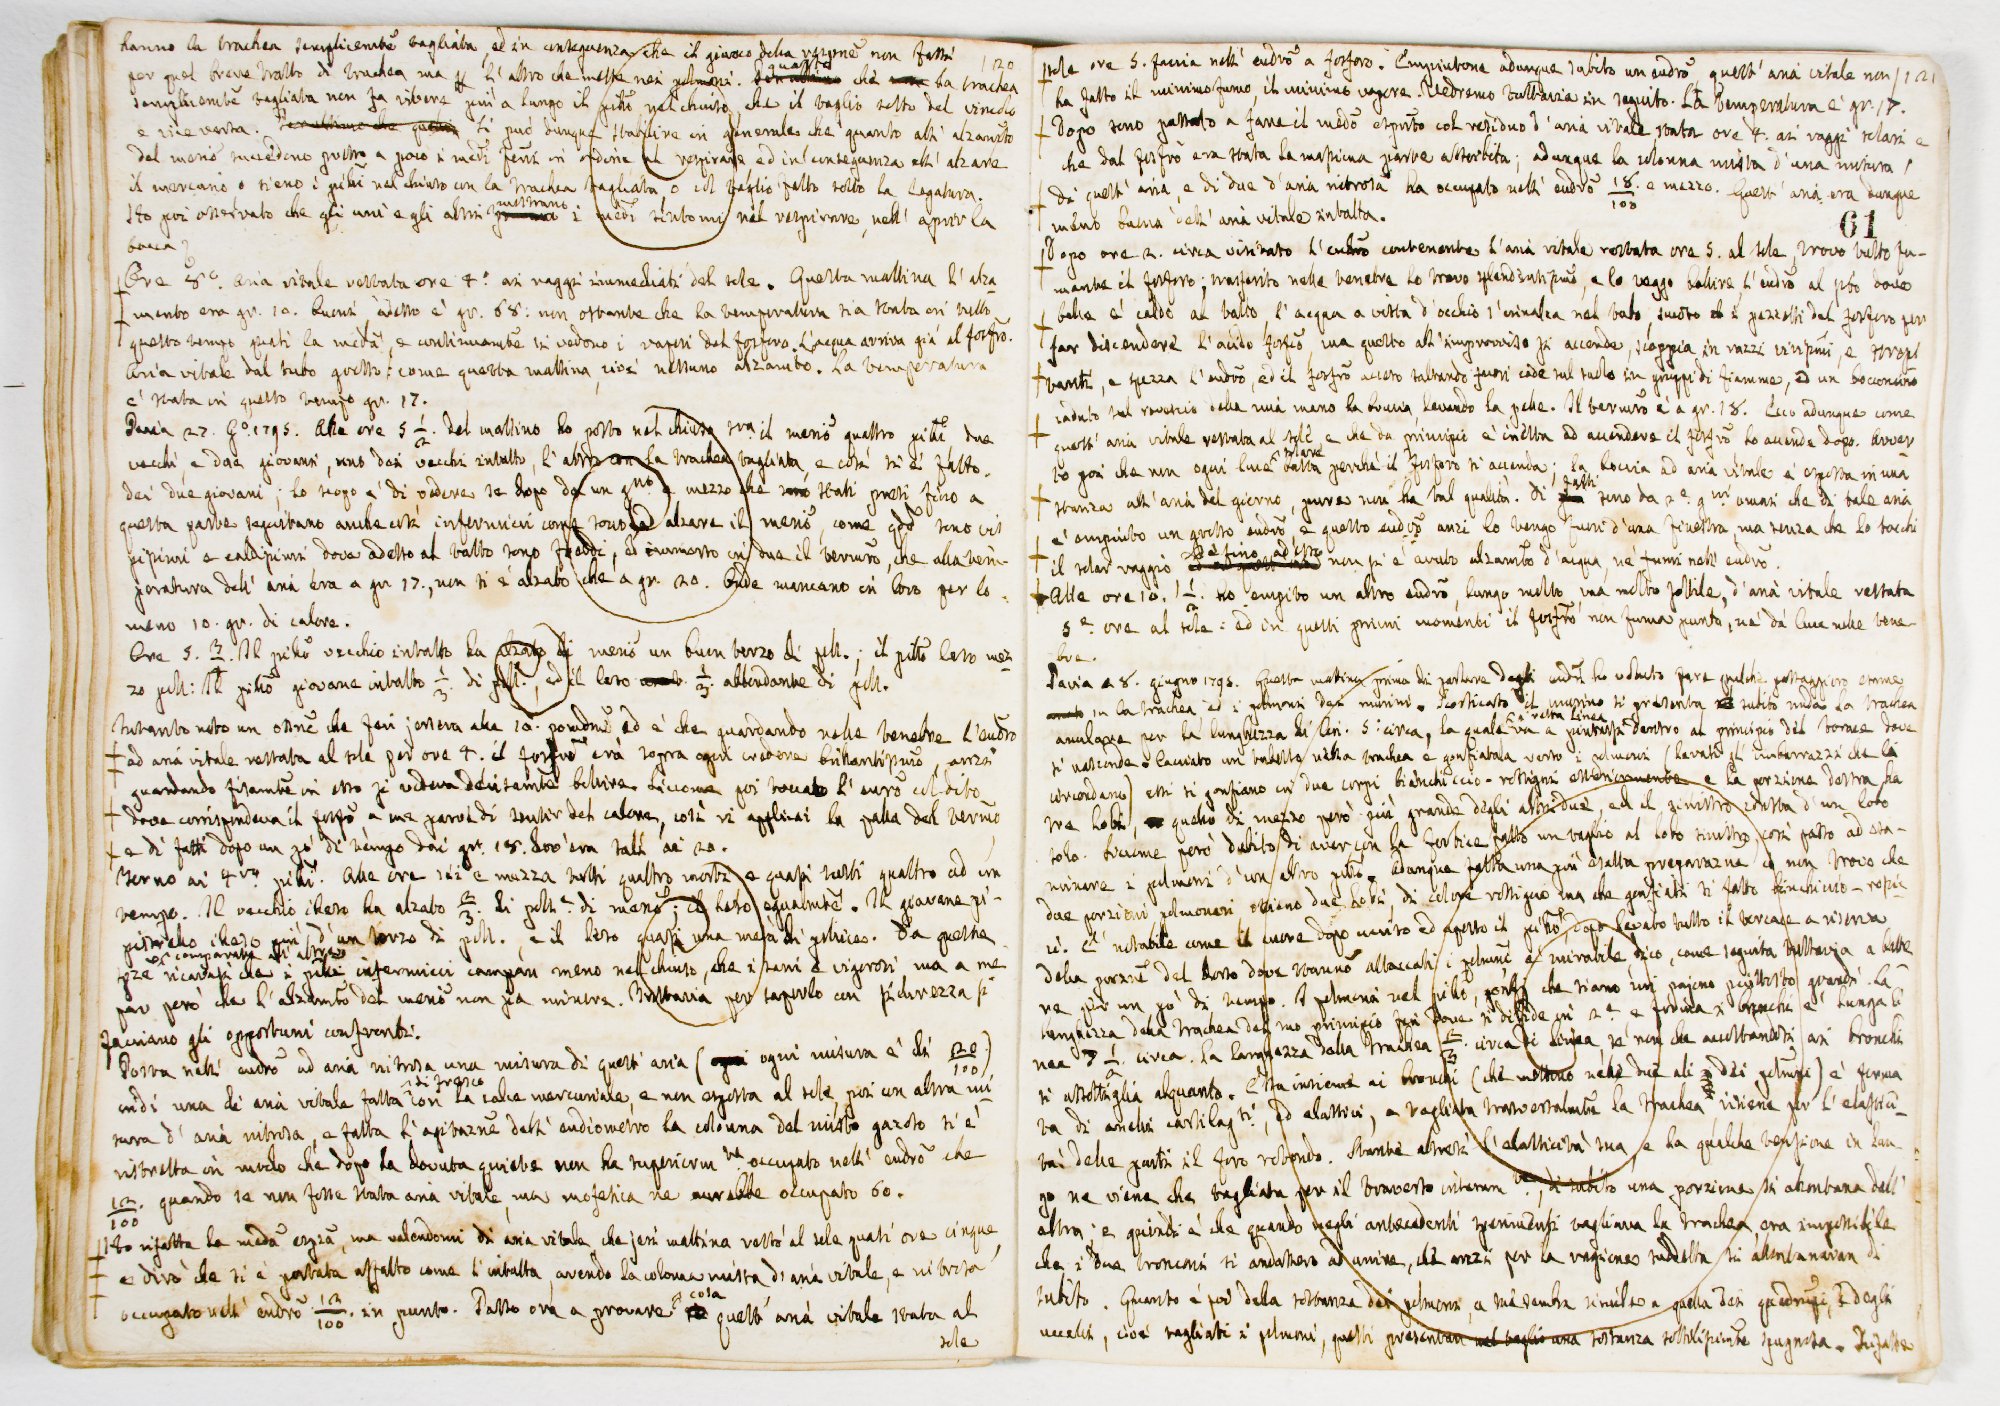 120
hanno la trachea semplicemte tagliata, ed in conseguenza che il giuoco della respne non fassi
per quel breve tratto di trachea ma pel l'altro che mette nei polmoni. quello che ha trachea
semplicemte tagliata non fa vivere più a lungo il pitro nel chiuso, che il taglio sotto del vincolo
e viceversa. Si può dunque stabilire in generale che quanto all'alzamto
del menso succedono presso a poco i medi fensi in ordine al respirare ed in conseguenza all'alzare
il mercurio o sieno i pitri nel chiuso con la trachea tagliata o col taglio fatto sotto la legatura.
Ho poi osservato che gli uni e gli altri mostrano i medi sintomi nel respirare, nell'aprir la
bocca
Ore 8e. Aria vitale restata ore 4e ai raggi immediati del sole. Questa mattina l'alza-
mento era gr. 10. adesso è gr. 68: non ostante che la temperatura sia stata in tutto
questo tempo quasi la meda, e continuamte si vedono i vapori del fosforo. L'acqua arriva già al fosfro.
Aria vitale dal tubo grosso: come questa mattina, cioè nessuno alzamto. La temperatura
è stata in questo tempo gr. 17.
Pavia 27. Go. 1795. Alle ore 5 1/2. del mattino ho posto nel chiuso sra il menso quattro pitri due
vecchi e due giovani, uno dei vecchi intatto, l'altro con la trachea tagliata, e così si è fatto
dei due giovani; lo scopo è di vedere se dopo da un gno e mezzo che sono stati presi fino a
questa parte seguitano anche così infermicci come sono ad alzare il menso, come qdo sono vis
pissimi e caldissimi dove adesso al tatto sono freddi, ed immerso in due il termro, che alla tem-
peratura dell'aria era a gr 17., non si è alzato che a gr. 20. Onde mancano in loro per lo
meno 10. gr. di calore.
Ore 5. 3/4. Il pitro vecchio intatto ha alzato di menso un buon terzo di poll.; il pitro leso mez
zo poll: Il pitro giovane intatto 1/3. di poll., ed il leso 1/3. abbondante di poll.
Intanto noto un ossne che feci jersera alle 10. pomdne ed è che guardando nelle tenebre l'eudro
ad aria vitale restata al sole per ore 4. il fosfro era sopra ogni credere brillantissimo, anzi
guardando fisamte in esso si vedeva decisamte bollire. Siccome poi toccato l'eudro col dito
dove corrispondeva il fosfro a me parve di sentir del calore, così vi applicai la palla del termro
e di fatti dopo un po' di tempo dai gr. 18. dov'era salì ai 20.
Torno ai 4ro pitri. Alle ore sei e mezza tutti quattro morti e quasi tutti quattro ad un
tempo. Il vecchio illeso ha alzato 2/3. di polle. di menso; il leso egualmte. Il giovane pi-
tello illeso più d'un terzo di poll., e il leso quasi una metà di pollice. Da queste
spze ricavasi che i pitri comparati ad altri infermicci campan meno nel chiuso, che i sani e vigorosi ma a me
par però che l'alzamto del menso non sia minore. Tuttavia per saperlo con sicurezza si
facciano gli opportuni confronti.
Posta nell'eudro ad aria nitrosa una misura di quest'aria (ogni misura è di 20/100)
indi una di aria vitale fatta di fresco con la calce mercuriale, e non esposta al sole, poi con altra mi
sura d'aria nitrosa, e fatta l'agitazne dell'eudiometro la colonna del misto gazoso si è
ristretta in modo che dopo la dovuta quiete non ha superiorm te occupato nell'eudro che
12/100. quando se non fosse stata aria vitale, ma mofetica ne avrebbe occupato 60.
Ho rifatta la meda espza, ma valendomi di aria vitale che jeri mattina restò al sole quasi ore cinque,
e dirò che si è portata affatto come l'intatta avendo la colonna mista d'aria vitale, e nitrosa
occupato nell'eudro 12/100. in punto. Passo ora a provare cosa quest'aria vitale stata al
sole
121
61
sole ore 5. faccia nell'eudro a fosforo. Empiutone adunque subito un eudro, quest'aria vitale non
ha fatto il minimo fumo, il minimo vapore. Vedremo tuttavia in seguito. La temperatura è gr. 17.
Dopo sono passato a fare il medo espmto col residuo d'aria vitale stata ore 4. ai raggi solari e
che dal fosfro era stata la massima parte assorbita; adunque la colonna mista d'una misura
di quest'aria, e di due d'aria nitrosa ha occupato nell'eudro 18/100. e mezzo. Quest'aria era dunque
meno buona dell'aria vitale intatta.
Dopo ore 2. circa visitato l'eudro contenente l'aria vitale restata ore 5. al sole, trovo tutto fu-
mante il fosforo; trasferito nelle tenebre lo trovo splendentissimo, e lo veggo bollire, l'eudro al sito dove
bolle è caldo al tatto, l'acqua a vista d'occhio s'innalza nel tubo, scuoto i pezzetti del fosforo per
far discendere l'acido fosfco, ma questo all'improvviso si accende, scoppia in razzi vivissimi, e strepi
tanti, e spezza l'eudro, ed il fosfro acceso saltando fuori cade sul suolo in gruppi di fiamme, ed un bocconcino
caduto sul rovescio della mia mano la brucia levando la pelle. Il termro è a gr. 18. Ecco adunque come
quest'aria vitale restata al sole e che da principio è inetta ad accendere il fosfro lo accende dopo. Avver
to poi che non ogni luce solare basta perché il fosforo si accenda; la boccia ad aria vitale è esposta in una
stanza all'aria del giorno, pure non ha tal qualità. Di fatti sono da 2e. gni quasi che di tale aria
è empiuto un grosso eudro, e questo eudro anzi lo tengo fuori d'una finestra ma senza che lo tocchi
il solar raggio ed è fino ad ora non si è avuto alzamto d'acqua, né fumi nell'eudro.
Alle ore 10. 1/2. ho empito un altro eudro, lungo molto, ma molto sottile, d'aria vitale restata
5e. ore al sole: ed in questi primi momenti il fosfro non fuma punto, né dà luce nelle tene-
bre.
Pavia 28. giugno 1795. Questa mattina prima di parlare degli eudri ho veduto fare qualche passaggiero esame
in la trachea ed i polmoni dei mimini. Scorticato il mimino si presenta subito nuda la trachea
anulare per la lunghezza di lin. 5. circa, la quale va a retta linea dentro al principio del torace dove
si nasconde. Cacciato un tubetto nella trachea e gonfiatala verso i polmoni (levati gl'imbarazzi che la
circondano) essi si gonfiano in due corpi bianchiccio-rossigni esternamente e la porzione destra ha
tre lobi, quello di mezzo però più grande degli altri due, ed il sinistro consta d'un lobo
solo. Siccome però dubito di aver con la forbice fatto un taglio al lobo sinistro, così passo ad esa-
minare i polmoni d'un altro pitro. Adunque fatta una più esatta preparazne non trovo che
due porzioni polmonari, ossieno due lobi, di colore rossigno ma che gonfiati si fatto bianchiccio-rossic
ci. È notabile come il cuore dopo ucciso ed aperto il pitro, dopo levato tutto il torcace a riserva
della porzne del dorso dove stanno attaccati i polmni è mirabile dico, come seguita tuttavia a batte
re per un po' di tempo. I polmoni nel pitro, gonfj che siano sin pajono piuttosto grandi. La
lunghezza della trachea dal suo principio fin dove si divide in 2e. e forma i bronchi è lunga li
nee 7 1/2. circa. La larghezza della trachea 2/3. circa di linea, se non che accostandosi ai bronchi
si assottiglia alquanto. Essa insieme ai bronchi (che mettono nelle due ali dei polmoni) è forma
ta di anelli cartilagsi, ed elastici, e tagliata trasversalmte la trachea ritiene per l'elastici-
tà delle parti il foro rotondo. Stante altresì l'elasticità sua, e ha qualche tensione in lun
go ne viene che tagliata per il traverso interam te, di subito una porzione si allontana dall'
altra; e quindi è che quando negli antecedenti sperimenti tagliava la trachea, era impossibile
che i due tronconi si andassero ad unire, che anzi per la ragione suddetta si allontanavan di
subito. Quanto è poi della sostanza dei polmoni, a me sembra simile a quella dei quadrupi, e degli
uccelli, cioè tagliati i polmoni, questi presentan nel taglio una sostanza sottilissimte spugnosa. Rifatte